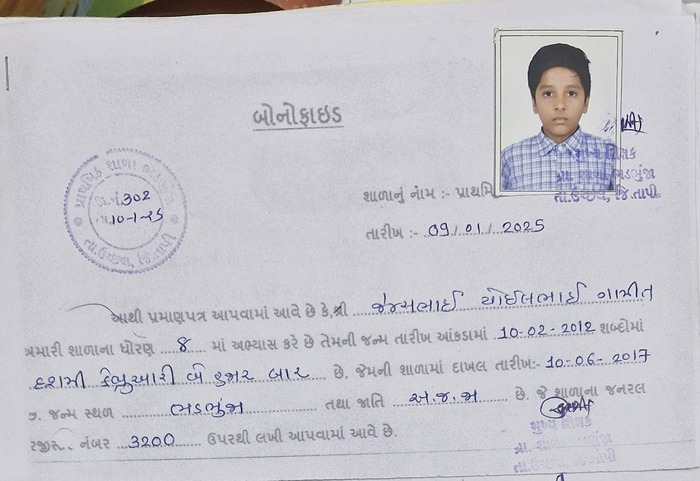 બોનોફાઇડ
પ્રાથમિક શાળા ભડભુંજા
જા.નં 302
તા.10-1-25
તા.ઉચ્છલ, જિ.તાપી
મુખ્ય શિક્ષક
પ્રા. શાળા ભડભુંજા
તા.ઉચ્છલ, જિ.તાપી
શાળાનું નામ :- પ્રાથમિ
તારીખ :- 09/01/2025
આથી પ્રમાણપત્ર આપવામાં આવે છે કે,શ્રી જેમ્સભાઈ યોઈલભાઈ ગામીત
અમારી શાળાના ધોરણ 8 માં અભ્યાસ કરે છે તેમની જન્મ તારીખ આંકડામાં 10-02-2012 શબ્દોમાં
દશમી ફેબ્રુઆરી બે હજાર બાર છે. જેમની શાળામાં દાખલ તારીખ:- 10-06-2017
જન્મ સ્થળ ભડભુંજા તથા જાતિ અ.જ.જા છે. જે શાળાના જનરલ
રજીસ્ટ. નંબર 3200 ઉપરથી લખી આપવામાં આવે છે.
મુખ્ય શિક્ષક
પ્રા. શાળા ભડભુંજા